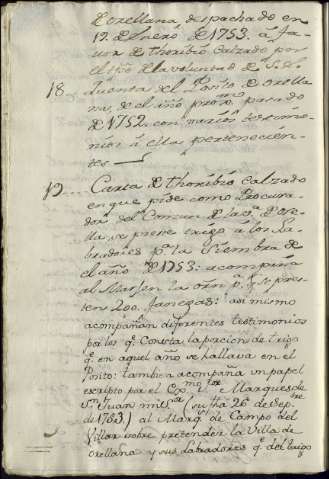 Orellana despachado en
12 de Enero de 1753. a fa-
vor de thoribio Calzado por
el tpo de la voluntad de S.
18. quenta del Posito de Orella
na, de el año prox.mo pasado
de 1752. con varios testimo-
nios a ella pertenecien-
tes
19 Carta de thoribio Calzado
en que pide como Procura-
dor del Comun de la v.a de Ore-
lla, se preste trigo a los La-
bradores p.a la Siembra de
el año de 1753: acompaña
al Margen la orn p.a q.e se pres-
ten 200. fanegas: asi mismo
acompañan diferentes testimonios
por los q.e Consta la porcion de trigo
q.e en aquel año se hallava en el
Posito: tambien acompaña un papel
escripto por el Marques de
S.n Juan (su fha 26 de Sep.re
de 1763) al Marq.s de Campo del
Villar sobre pretender la Villa de
Orellana y sus Labradores q.e del trigo